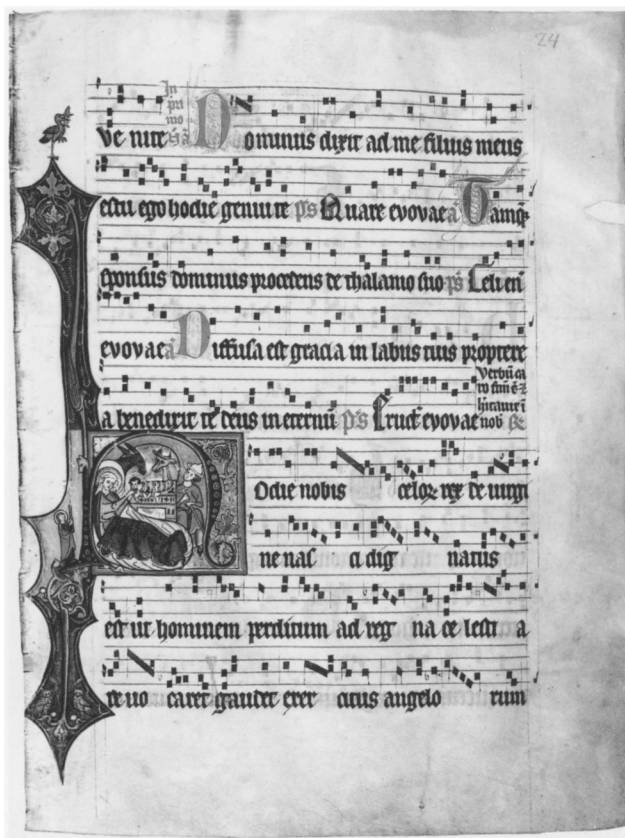 24
In
pri
mo
ve nite Dominus dixit ad me filius meus
es tu ego hodie genui te ps Quare evovae a Tamq
sponsus dominus procedens de thalamo suo ps Celi en
evovae a Diffusa est gracia in labiis tuis proptere
a benedixit te deus in eternū ps Eruct evovae
Verbū ca
ro fm ē z
hitavit ī
nob
Hodie nobis celoꝝ rex de virgi
ne nas ci dig natus
est ut hominem perditum ad reg na ce lesti a
re vo caret gaudet exer citus angelo rum